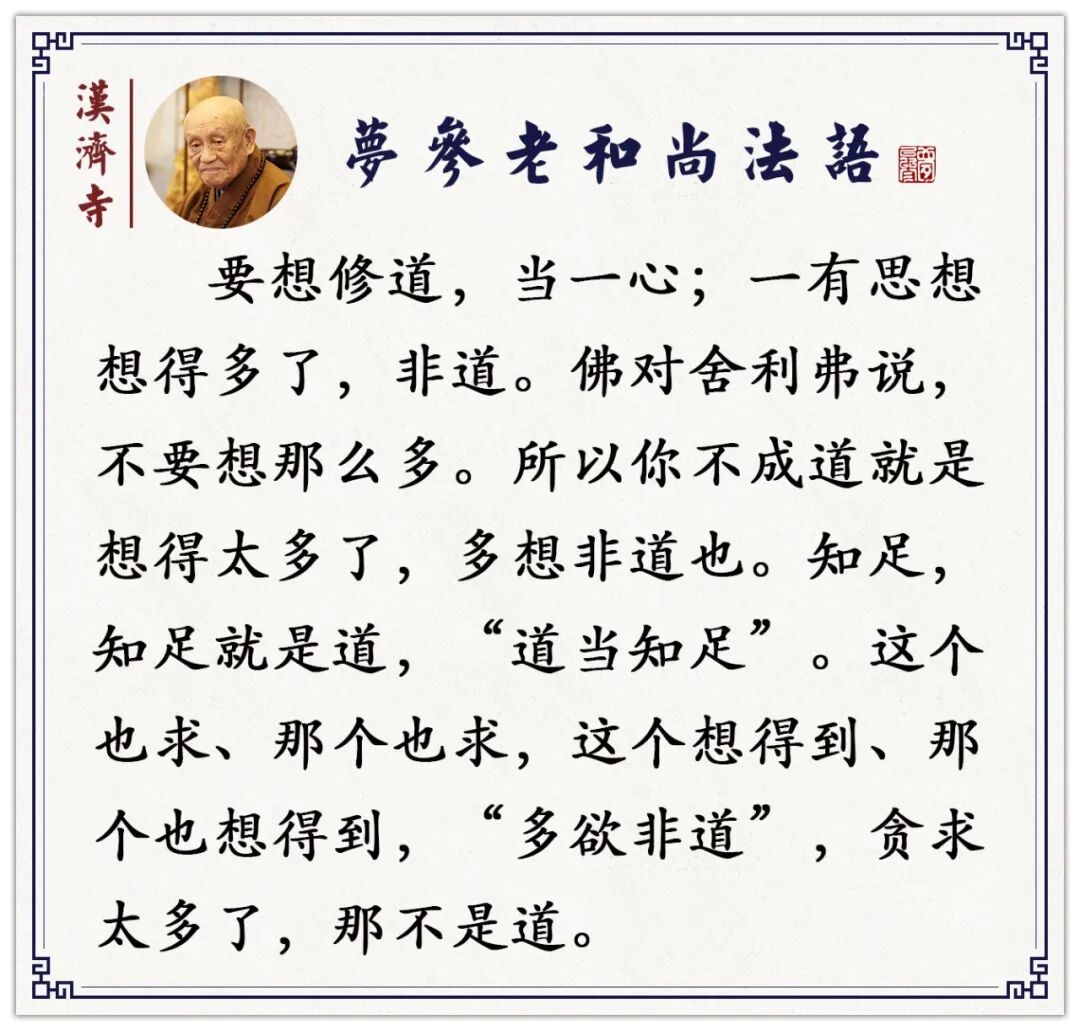 漢濟寺
夢參老和尚法語
要想修道，当一心；一有思想
想得多了，非道。佛对舍利弗说，
不要想那么多。所以你不成道就是
想得太多了，多想非道也。知足，
知足就是道，“道当知足”。这个
也求、那个也求，这个想得到、那
个也想得到，“多欲非道”，贪求
太多了，那不是道。